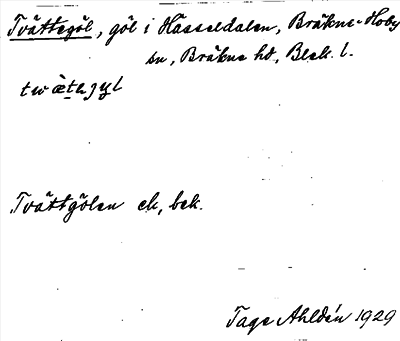 Tvättegöl, göl i Hässeldalen, Bräkne-Hoby
sn, Bräkne hd, Blek. l.
Tvättgölen ek, bek.
Tage Ahldén 1929